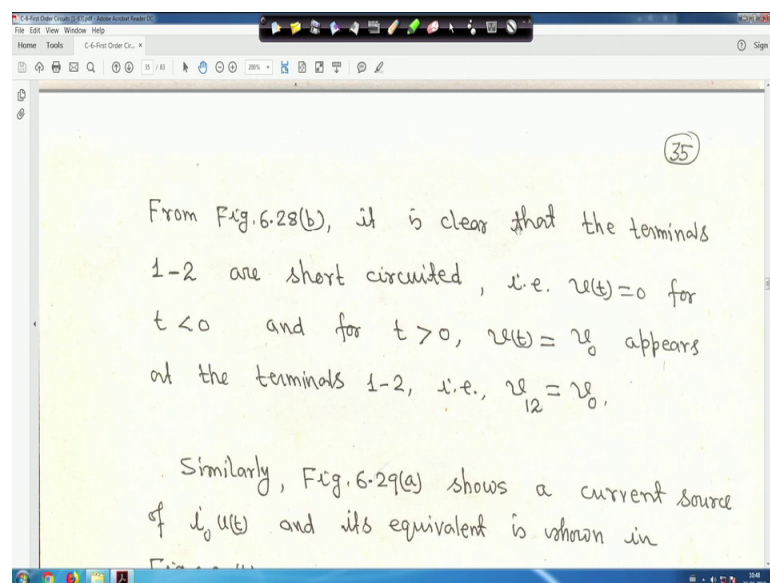 C-6-First Order Circuits [1-83].pdf - Adobe Acrobat Reader DC
File Edit View Window Help
Home Tools C-6-First Order Cir... × Sign
35 / 83 200%
35
From Fig.6.28(b), it is clear that the terminals
1-2 are short circuited, i.e. v(t)=0 for
t<0 and for t>0, v(t)=v₀ appears
at the terminals 1-2, i.e., v₁₂=v₀.
Similarly, Fig.6.29(a) shows a current source
of i₀u(t) and its equivalent is shown in
10:48